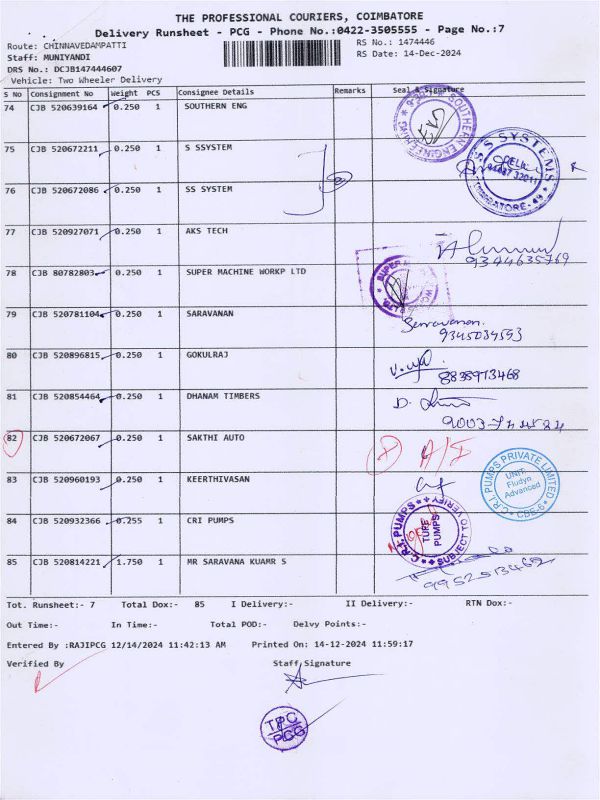 THE PROFESSIONAL COURIERS, COIMBATORE
Delivery Runsheet - PCG - Phone No.:0422-3505555 - Page No.:7
Route: CHINNAVEDAMPATTI
RS No.: 1474446
Staff: MUNIYANDI
RS Date: 14-Dec-2024
DRS No.: DCJB147444607
Vehicle: Two Wheeler Delivery
S No Consignment No Weight PCS Consignee Details Remarks Seal & Signature
74 CJB 520639164 0.250 1 SOUTHERN ENG
75 CJB 520672211 0.250 1 S SSYSTEM
S S SYSTEMS
COIMBATORE-49
76 CJB 520672086 0.250 1 SS SYSTEM
77 CJB 520927071 0.250 1 AKS TECH
9344635769
78 CJB 80782803 0.250 1 SUPER MACHINE WORKP LTD
79 CJB 520781104 0.250 1 SARAVANAN
Saravanan.
9345034593
80 CJB 520896815 0.250 1 GOKULRAJ
8838973468
81 CJB 520854464 0.250 1 DHANAM TIMBERS
82 CJB 520672067 0.250 1 SAKTHI AUTO
83 CJB 520960193 0.250 1 KEERTHIVASAN
C.R.I. PUMPS PRIVATE LIMITED
UNIT:
Fludyn
Advanced
CBE-6
84 CJB 520932366 0.255 1 CRI PUMPS
C.R.I. PUMPS
SUBJECT TO VERIFY
PUMPS
85 CJB 520814221 1.750 1 MR SARAVANA KUAMR S
9952513462
Tot. Runsheet:- 7 Total Dox:- 85 I Delivery:- II Delivery:- RTN Dox:-
Out Time:- In Time:- Total POD:- Delvy Points:-
Entered By :RAJIPCG 12/14/2024 11:42:13 AM Printed On: 14-12-2024 11:59:17
Verified By Staff Signature
TPC
PCG